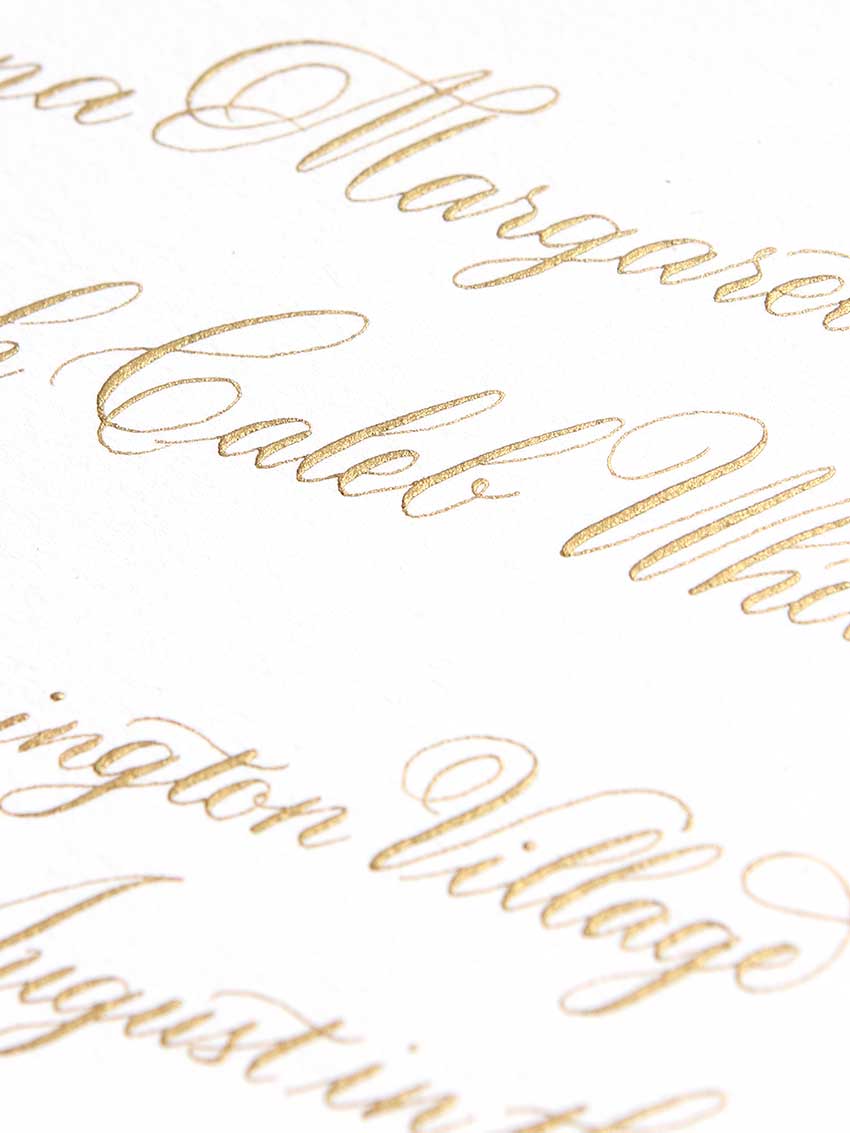 na Margaret
h Caleb Whi
ington Village
August in th